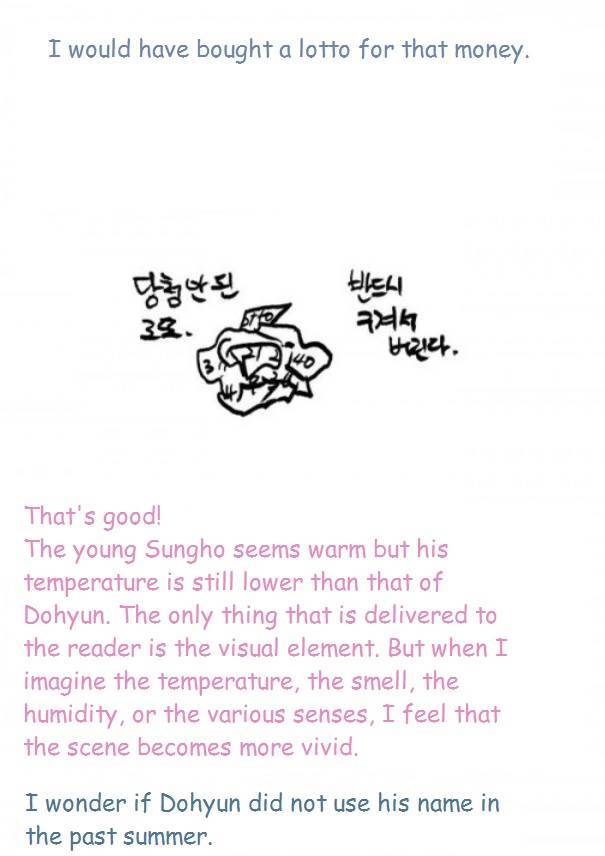 I would have bought a lotto for that money.
당첨 안 된
로또.
반드시
구겨서
버린다.
otto
3
212
40
That's good!
The young Sungho seems warm but his
temperature is still lower than that of
Dohyun. The only thing that is delivered to
the reader is the visual element. But when I
imagine the temperature, the smell, the
humidity, or the various senses, I feel that
the scene becomes more vivid.
I wonder if Dohyun did not use his name in
the past summer.